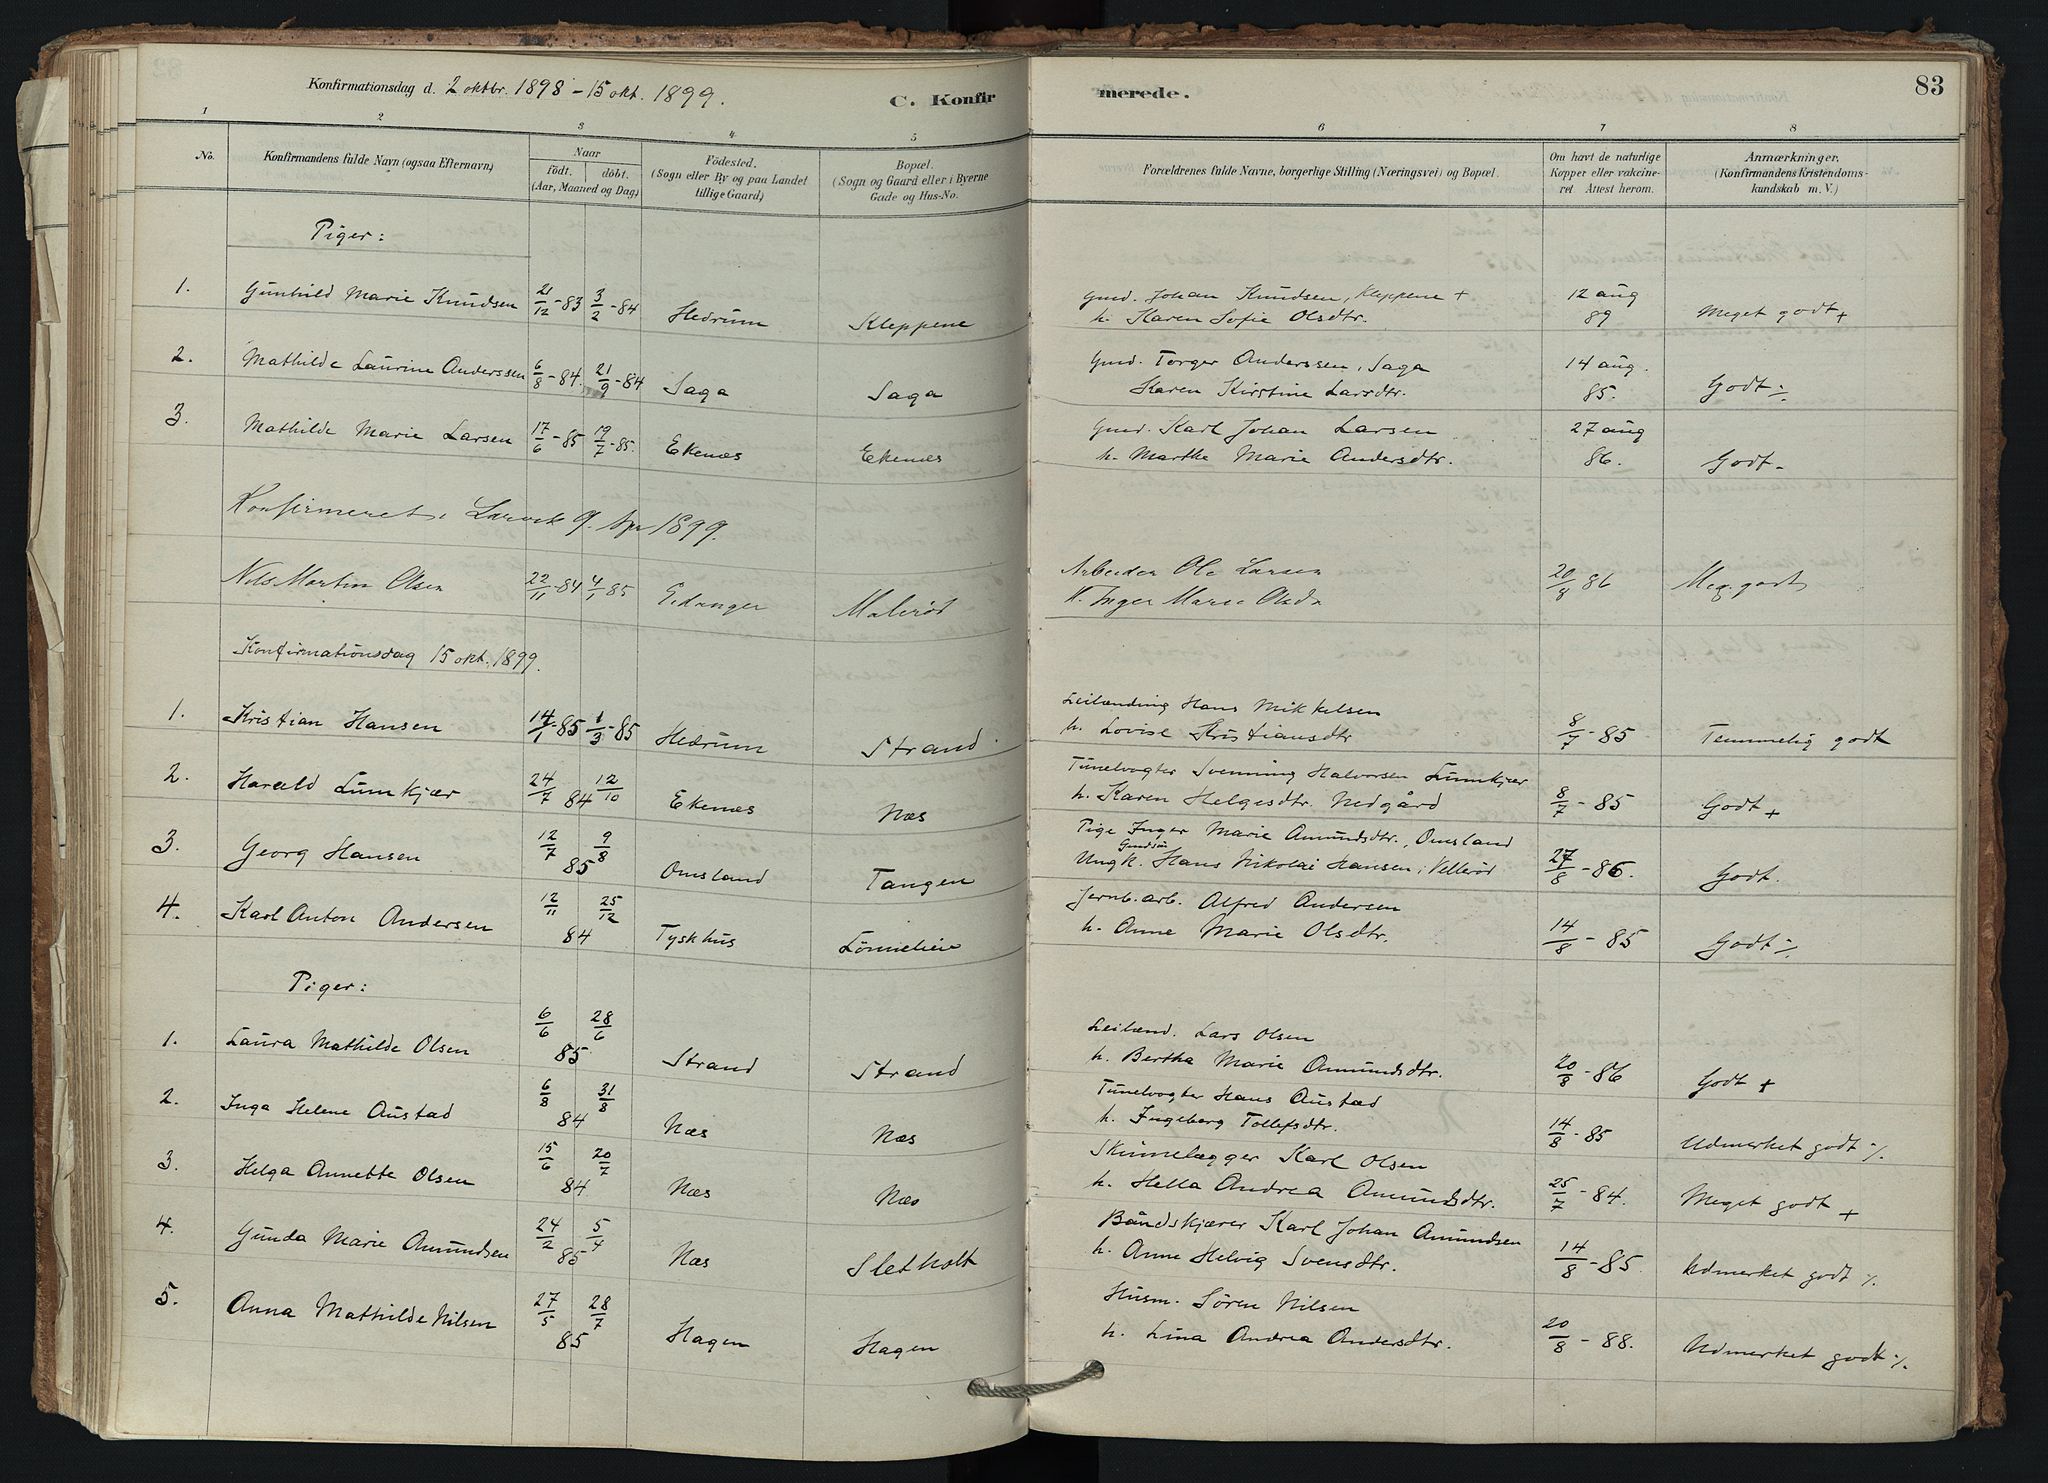 Konfirmationsdag d. 2 oktbr. 1898 - 15 okt. 1899.
C. Konfirmerede.
83
1 2 3 4 5 6 7 8
No.
Konfirmandens fulde Navn (ogsaa Efternavn)
Naar
født. døbt.
(Aar, Maaned og Dag)
Fødested.
(Sogn eller By og paa Landet tillige Gaard)
Bopæl.
(Sogn og Gaard eller i Byerne Gade og Hus-No.
Forældrenes fulde Navne, borgerlige Stilling (Næringsvei) og Bopæl.
Om havt de naturlige Kopper eller vakcineret. Attest herom.
Anmærkninger.
(Konfirmandens Kristendomskundskab m. V.)
Piger:
1. Gunhild Marie Knudsen 21/12-83 3/2-84 Hedrum Kleppene Gmd. Johan Knudsen, Kleppene + 12 aug 89 Meget godt +
h. Karen Sofie Olsdtr.
2. Mathilde Laurine Anderssen 6/8-84. 21/9-84 Saga Saga Gmd. Torger Anderssen, Saga 14 aug. 85. Godt ÷
Karen Kirstine Larsdtr.
3. Mathilde Marie Larsen 17/6-85 19/7-85. Ekenæs Ekenæs Gmd. Karl Johan Larsen 27 aug 86. Godt -
h. Marthe Marie Andersdtr.
Konfirmeret i Larvik 9. Apr 1899.
Nils Martin Olsen 22/11-84 4/1-85 Eidanger Malerød Arbeider Ole Larsen 20/8 86 Meg. godt
H. Inger Marie Olsd
Konfirmationsdag 15 okt. 1899.
1. Kristian Hansen 14/1-85 1/3-85 Hedrum Strand Leilænding Hans Mikkelsen 8/7-85 Temmelig godt
h. Lovise Kristiansdtr
2. Harald Lumkjær 24/7 12/10 84 Ekenæs Næs Tunelvogter Svenning Halvorsen Lumkjær 8/7-85 Godt +
h. Karen Helgesdtr. Nedgård
3. Georg Hansen 12/7 9/8 85 Omsland Tangen Pige Inger Marie Amundsdtr., Omsland 27/8-86. Godt.
Ungk. Gmdsøn Hans Nikolai Hansen, Vellerød
4. Karl Anton Andersen 12/11 25/12 84 Tyskhus Lønnelieie Jernb. arb. Alfred Andersen 14/8-85 Godt ÷
h. Anne Marie Olsdtr.
Piger:
1. Laura Mathilde Olsen 6/6 28/6 85 Strand Strand Leilænd. Lars Olsen 20/8-86 Godt +
h. Bertha Marie Amundsdtr.
2. Inga Helene Austad 6/8 31/8 84 Næs Næs Tunelvogter Hans Austad 14/8-85 Udmerket godt ÷
h. Ingeborg Tollefsdtr.
3. Helga Annette Olsen 15/6 20/7 84 Næs Næs Skinnelægger Karl Olsen 25/7-84. Meget godt +
h. Hella Andrea Amundsdtr.
4. Gunda Marie Amundsen 24/2 5/4 85 Næs Sletholt Båndskjærer Karl Johan Amundsen 14/8-85. Udmerket godt ÷
h. Anne Helvig Svensdtr.
5. Anna Mathilde Nilsen 27/5 28/7 85 Hagen Hagen Husm. Søren Nilsen 20/8-88. Udmerket godt ÷
h. Lina Andrea Andersdtr.